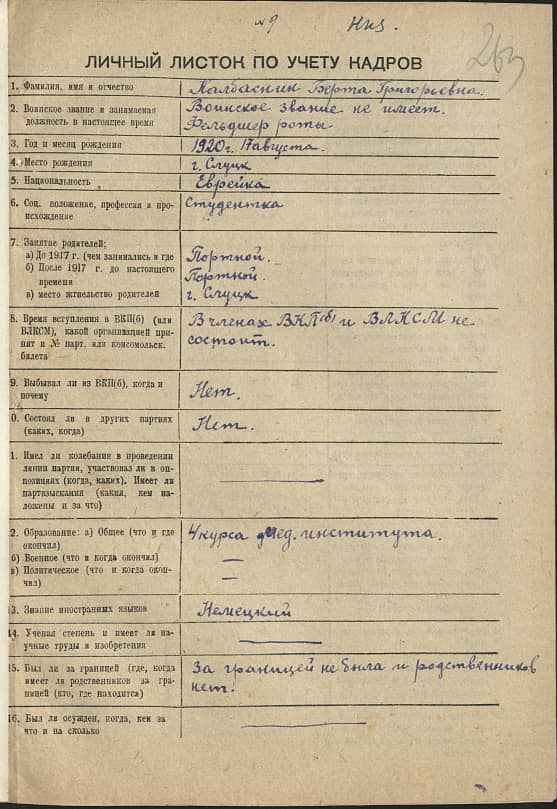 № 9
ЛИЧНЫЙ ЛИСТОК ПО УЧЕТУ КАДРОВ
1. Фамилия, имя и отчество
Палбасник Берта Григорьевна.
2. Воинское звание и занимаемая
должность в настоящее время
Воинское звание не имеет.
Фельдшер роты
3. Год и месяц рождения
1920 г. 17 августа.
4. Место рождения
г. Слуцк
5. Национальность
Еврейка
6. Соц. положение, профессия и про-
исхождение
Студентка
7. Занятие родителей;
а) До 1917 г. (чем занимались и где
б) После 1917 г. до настоящего
времени
в) место жительство родителей
Портной.
Портной.
г. Слуцк
8. Время вступления в ВКП(б) (или
ВЛКСМ), какой организацией при-
нят и № парт. или комсомольск.
билета
В членах ВКП(б) и ВЛКСМ не
состоит.
9. Выбывал ли из ВКП(б), когда и
почему
Нет.
0. Состоял ли в других партиях
(каких, когда)
Нет.
1. Имел ли колебания в проведении
линии партии, участвовал ли в оп-
позициях (когда, каких). Имеет ли
партвзыскания (какия, кем на-
ложены и за что)
2. Образование: а) Общее (что и где
окончил)
б) Военное (что и когда окончил)
в) Политическое (что и когда окон-
чил)
4 курса мед. института.
—
—
3. Знание иностранных языков
Немецкий
14. Ученая степень и имеет ли на-
учные труды и изобретения
15. Был ли за границей (где, когда
имеет ли родственников за гра-
ницей (кто, где находится)
За границей не была и родственников
нет.
16. Был ли осужден, когда, кем за
что и на сколько